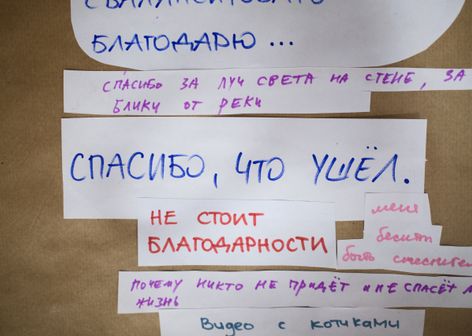 СБАЛАНСИРОВАТО
БЛАГОДАРЮ ...
СПАСИБО ЗА ЛУЧ СВЕТА НА СТЕНЕ, ЗА
БЛИКИ ОТ РЕКИ
СПАСИБО, ЧТО УШЁЛ.
НЕ СТОИТ
БЛАГОДАРНОСТИ
меня
бесит
быть
ПОЧЕМУ НИКТО НЕ ПРИДЁТ И НЕ СПАСЁТ
ЖИЗНЬ
Видео с котиками